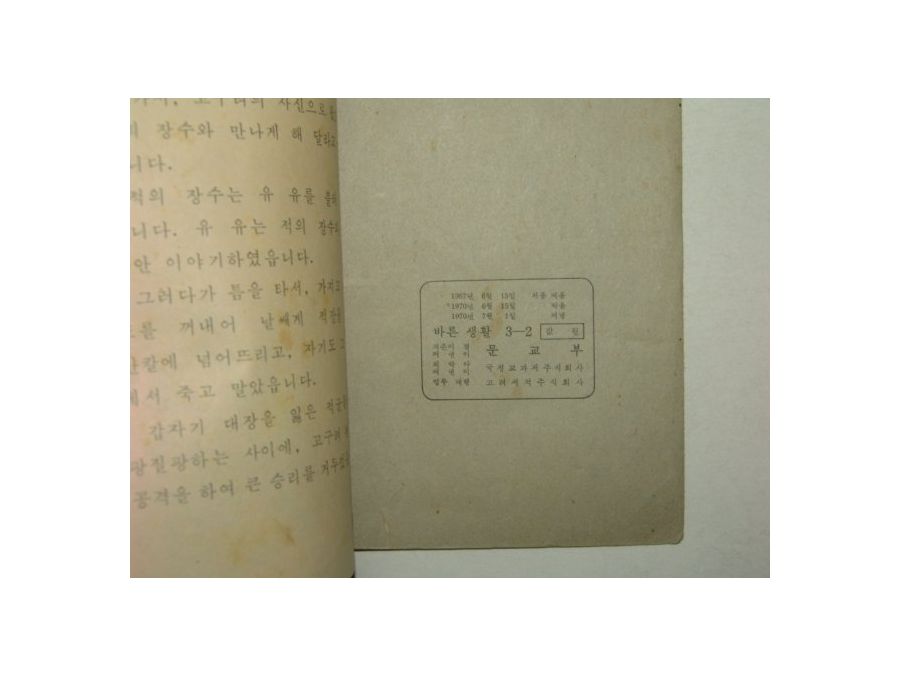 고구려의 사신으로
장수와 만나게 해 달라고
니다.
적의 장수는 유 유를
니다. 유 유는 적의 장수
안 이야기하였읍니다.
그러다가 틈을 타서, 가지고
꺼내어 날쌔게 적장을
칼에 넘어뜨리고, 자기도 그
에서 죽고 말았읍니다.
갑자기 대장을 잃은 적군
팡질팡하는 사이에, 고구려
공격을 하여 큰 승리를 거두
1967년 6월 15일 처음 펴움
1970년 6월 15일 박음
1970년 7월 1일 펴냄
바른 생활 3—2 값 원
지은이 겸 펴낸이 문교부
국정교과서주식회사
고려서적주식회사